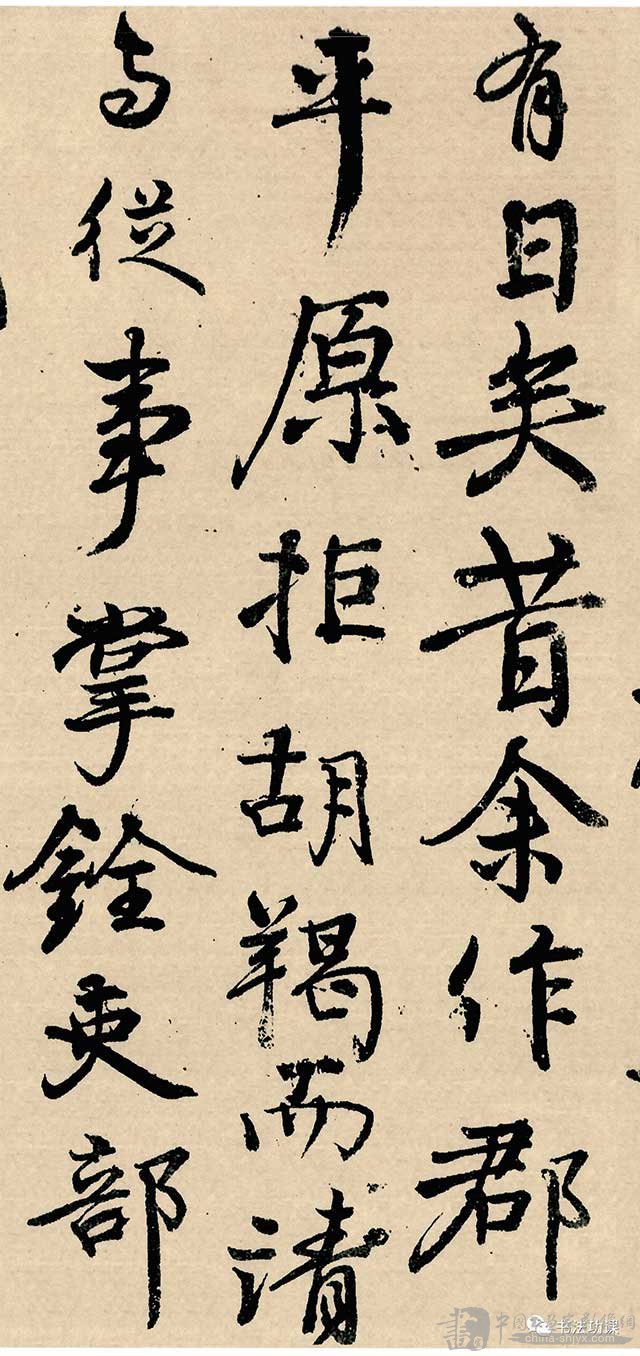 有日矣昔余作郡
平原拒胡羯而请
与从事掌銓吏部
書法功课
china-shjyx.com